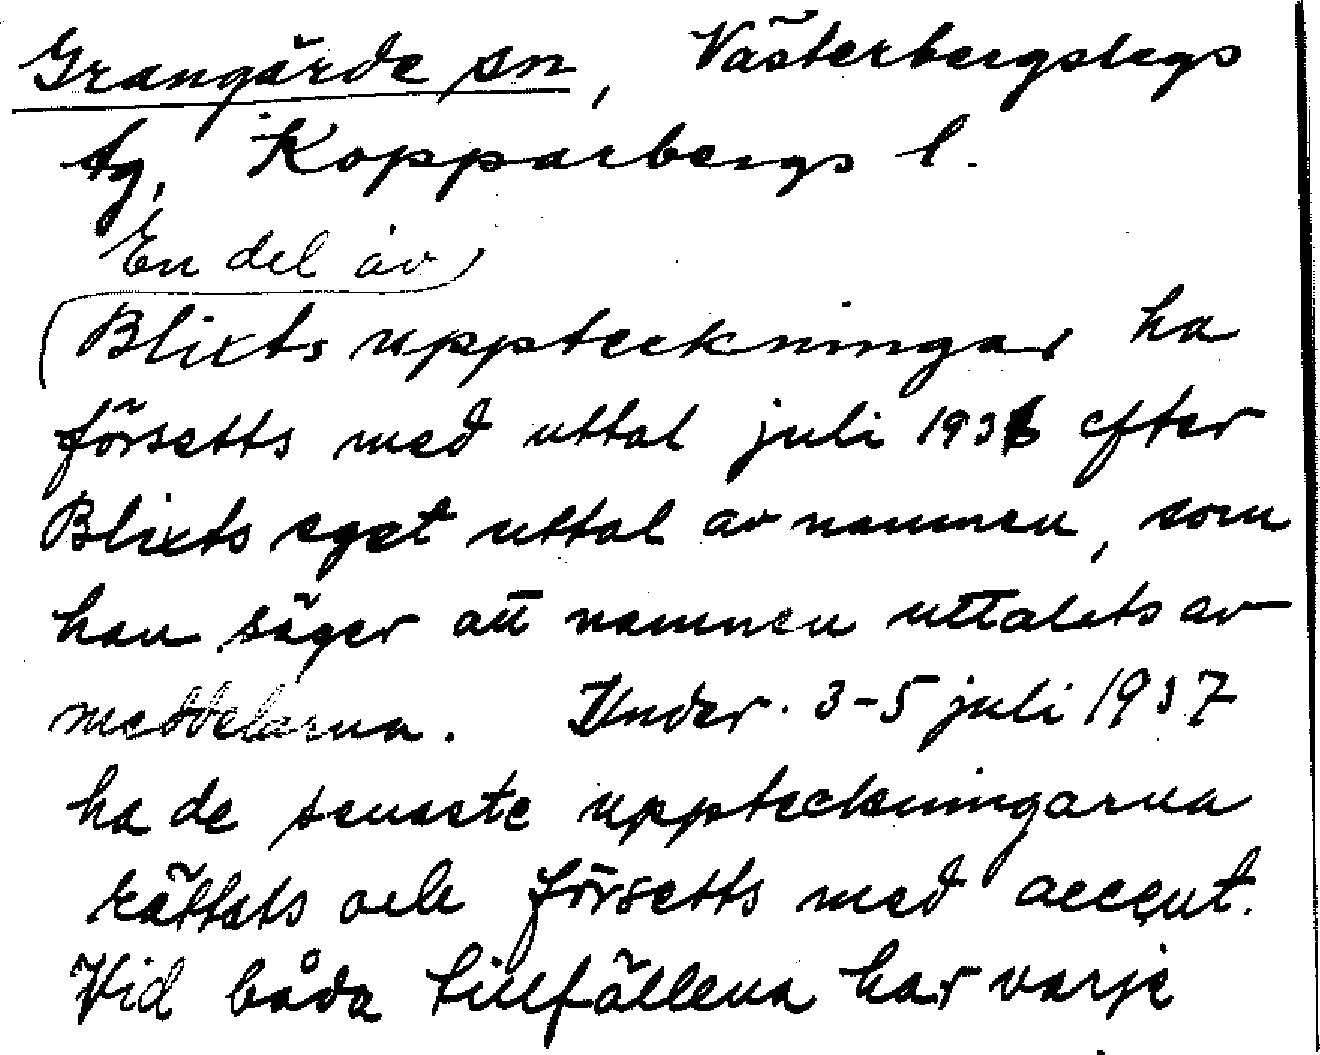 Grangärde sn, Västerbergslags
tg, Kopparbergs l.
En del av
Blixts uppteckningar ha
försetts med uttal juli 1936 efter
Blixts eget uttal av namnen, som
han säger att namnen uttalats av
meddelarna. Under 3-5 juli 1937
ha de senaste uppteckningarna
rättats och försetts med accent.
Vid båda tillfällena har varje